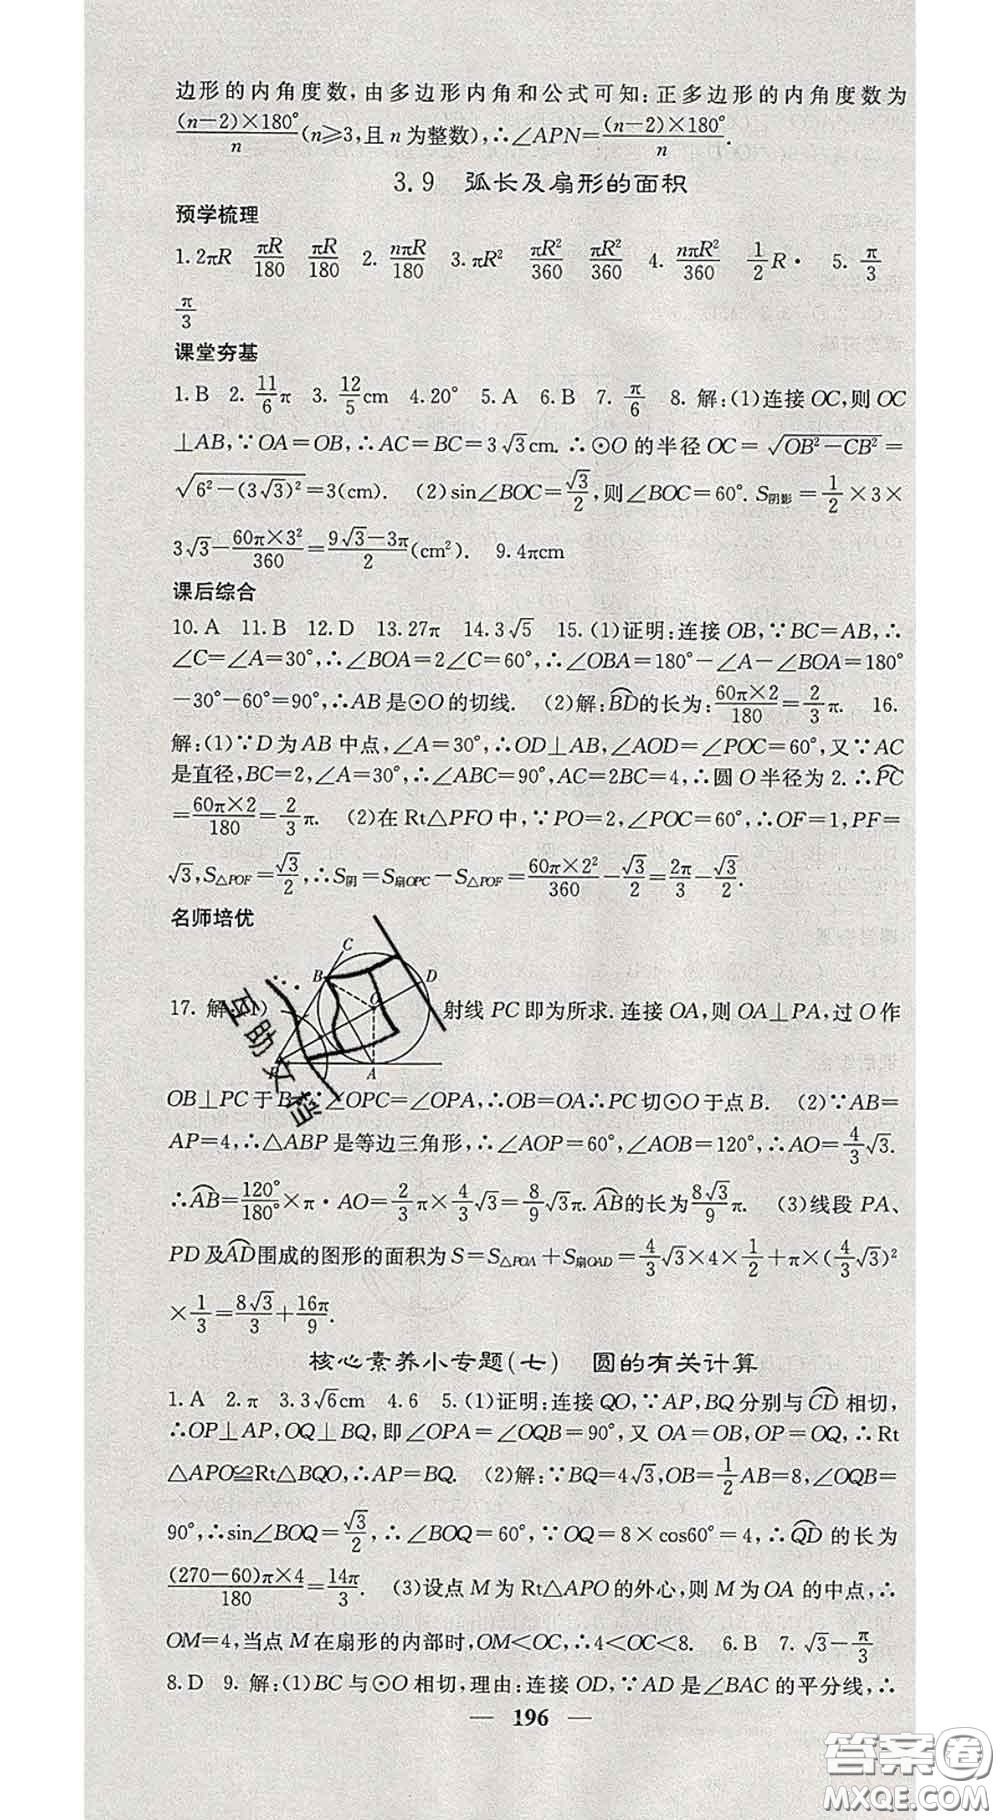 边形的内角度数,由多边形内角和公式可知:正多边形的内角度数为
(n−2)×180°/n (n⩾3,且 n 为整数),∴∠APN=(n−2)×180°/n.
3.9 弧长及扇形的面积
预学梳理
1. 2πR πR/180 πR/180 2. nπR/180 3. πR² πR²/360 πR²/360 4. nπR²/360 1/2 R· 5. π/3
π/3
课堂夯基
1. B 2. 11/6 π 3. 12/5 cm 4. 20° 5. A 6. B 7. π/6 8. 解:(1)连接 OC,则 OC
⊥AB,∵OA=OB,∴AC=BC=3√3cm.∴⊙O 的半径 OC=√(OB²−CB²)=
√(6²−(3√3)²)=3(cm). (2)sin∠BOC=√3/2,则∠BOC=60°.S阴影=1/2×3×
3√3−60π×3²/360=(9√3−3π)/2(cm²). 9. 4πcm
课后综合
10. A 11. B 12. D 13. 27π 14. 3√5 15. (1)证明:连接 OB,∵BC=AB,∴
∠C=∠A=30°,∴∠BOA=2∠C=60°,∴∠OBA=180°−∠A−∠BOA=180°
−30°−60°=90°,∴AB 是⊙O 的切线. (2)解:BD⌒的长为:60π×2/180=2/3 π. 16.
解:(1)∵D 为 AB 中点,∠A=30°,∴OD⊥AB,∠AOD=∠POC=60°,又∵AC
是直径,BC=2,∠A=30°,∴∠ABC=90°,AC=2BC=4,∴圆 O 半径为 2.∴PC⌒
=60π×2/180=2/3 π. (2)在 Rt△PFO 中,∵PO=2,∠POC=60°,∴OF=1,PF=
√3,S△POF=√3/2,∴S阴=S扇OPC−S△POF=60π×2²/360−√3/2=2π/3−√3/2.
名师培优
C
B D
17. 解:(1) 射线 PC 即为所求.连接 OA,则 OA⊥PA,过 O 作
A
互助文档
OB⊥PC 于 B,∵∠OPC=∠OPA,∴OB=OA∴PC 切⊙O 于点 B. (2)∵AB=
AP=4,∴△ABP 是等边三角形,∴∠AOP=60°,∠AOB=120°,∴AO=4/3 √3.
∴AB⌒=120°/180°×π·AO=2/3 π×4/3 √3=8/9 √3π.AB⌒的长为8√3/9 π. (3)线段 PA、
PD 及AD⌒围成的图形的面积为 S=S△POA+S扇OAD=4/3 √3×4×1/2+π×(4/3 √3)²
×1/3=8√3/3+16π/9.
核心素养小专题(七) 圆的有关计算
1. A 2. π 3. 3√6cm 4. 6 5. (1)证明:连接 QO,∵AP,BQ 分别与CD⌒相切,
∴OP⊥AP,OQ⊥BQ,即∠OPA=∠OQB=90°,又 OA=OB,OP=OQ,∴Rt
△APO≌Rt△BQO,∴AP=BQ. (2)解:∵BQ=4√3,OB=1/2 AB=8,∠OQB=
90°,∴sin∠BOQ=√3/2,∴∠BOQ=60°,∵OQ=8×cos60°=4,∴QD⌒的长为
(270−60)π×4/180=14π/3. (3)设点 M 为 Rt△APO 的外心,则 M 为 OA 的中点,∴
OM=4,当点 M 在扇形的内部时,OM<OC,∴4<OC<8. 6. B 7. √3−π/3
8. D 9. 解:(1)BC 与⊙O 相切,理由:连接 OD,∵AD 是∠BAC 的平分线,∴
— 196 —
答案圈
MXQE.COM